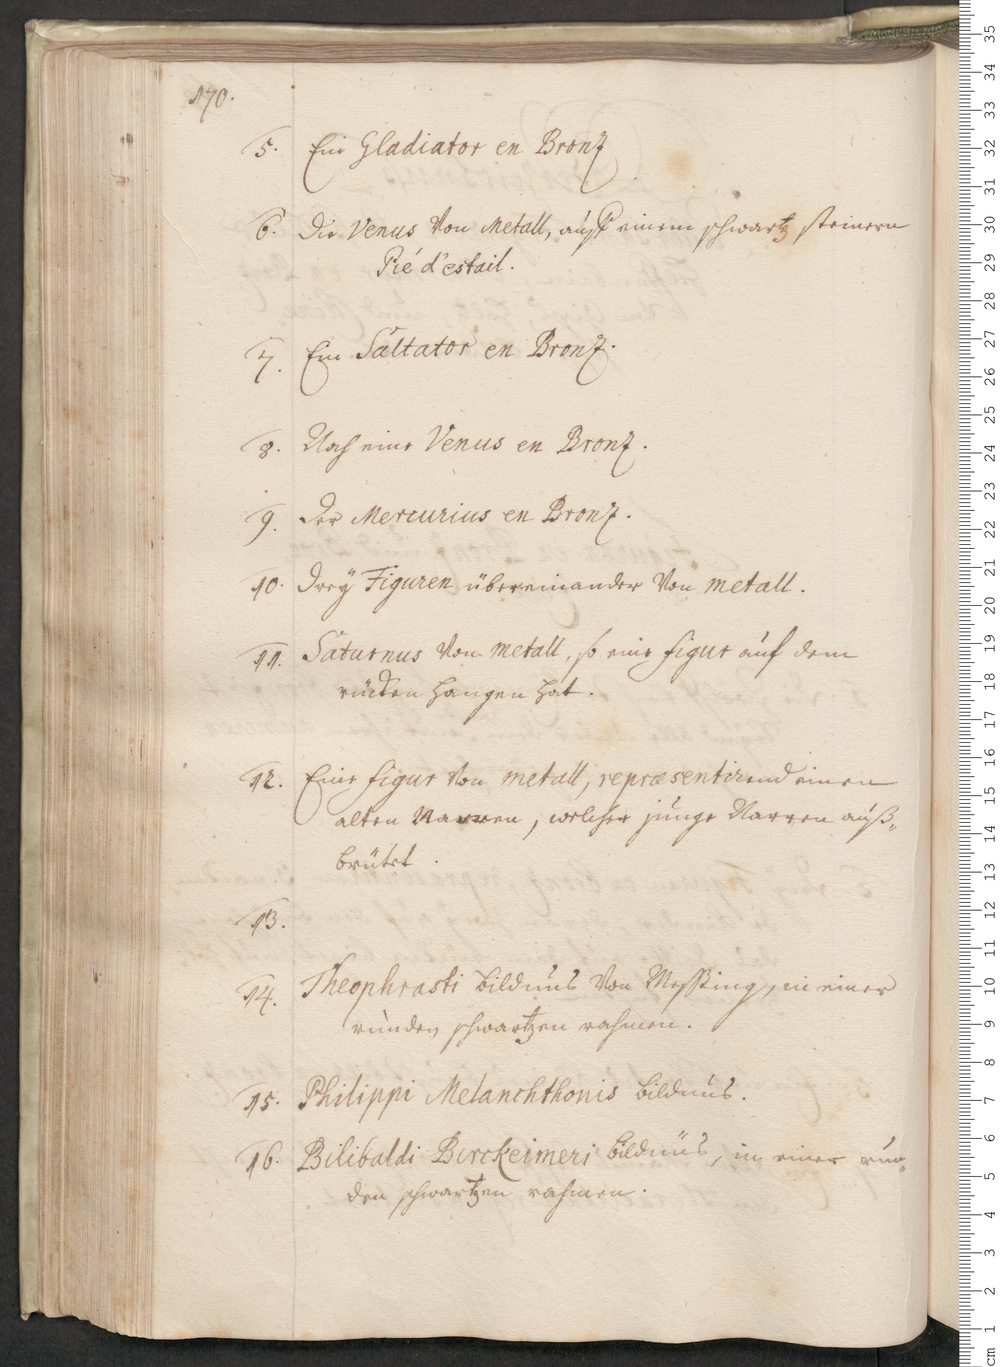 170.
5. Ein Gladiator en Bronz
6. Die Venus Von Metall, auff einem schwartz steinern
Pié d'estail.
7. Ein Saltator en Bronz.
8. Noch eine Venus en Bronz.
9. Der Mercurius en Bronz.
10. Dreÿ Figuren übereinander Von metall.
11. Saturnus Von metall, so eine figur auf dem
rücken hangen hat.
12. Eine figur Von metall, repræsentirend einen
alten Narren, welcher junge Narren auß-
brütet.
13.
14. Theophrasti bildnus Von Messing, in einer
runden schwartzen rahmen.
15. Philippi Melanchthonis bildnus.
16. Bilibaldi Birckeimeri bildnüs, in einer run-
den schwartzen rahmen.
35
34
33
32
31
30
29
28
27
26
25
24
23
22
21
20
19
18
17
16
15
14
13
12
11
10
9
8
7
6
5
4
3
2
1
cm